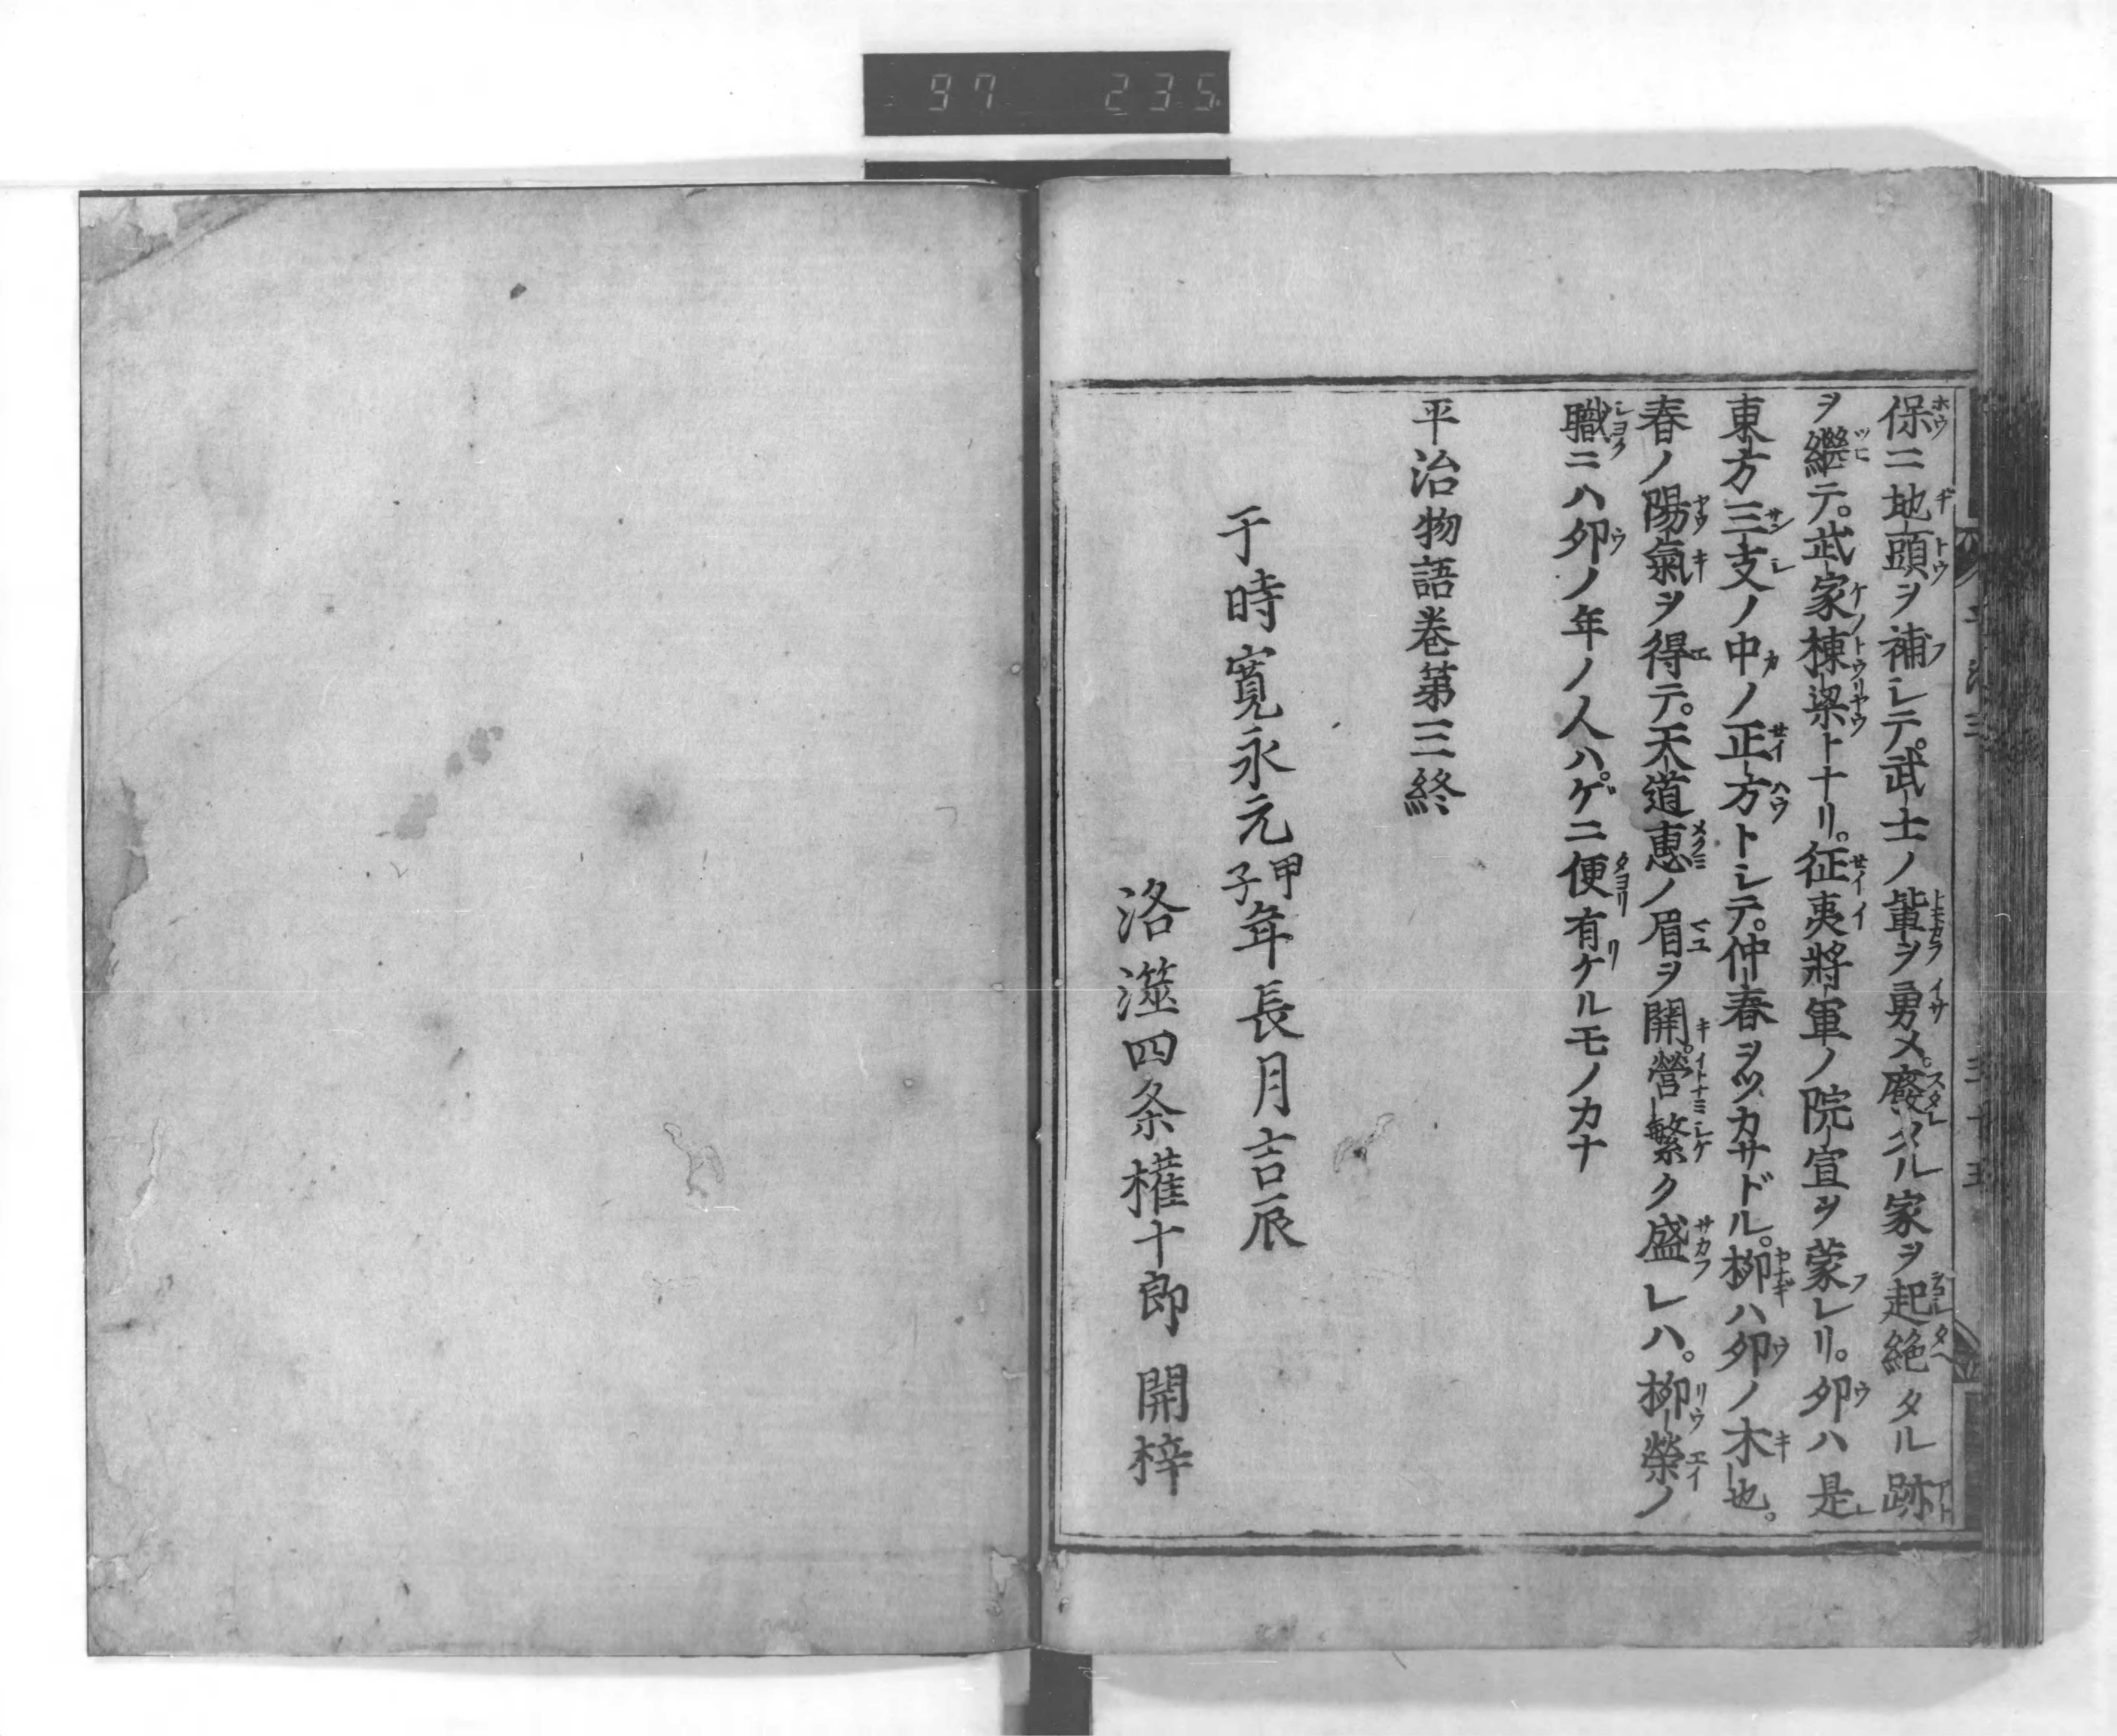 97 235
保ニ地頭ヲ補シテ。武士ノ輩ヲ勇メ。廢タル家ヲ起絶タル跡
ヲ繼テ。武家棟梁トナリ。征夷將軍ノ院宣ヲ蒙レリ。卯ハ是
東方三支ノ中ノ正方トシテ。仲春ヲツカサドル。栁ハ卯ノ木也。
春ノ陽氣ヲ得テ。天道惠ノ眉ヲ開。營繁ク盛レハ。栁榮ノ
職ニハ卯ノ年ノ人ハ。ゲニ便有ケルモノカナ
平治物語卷第三終
于時寬永元甲子年長月吉辰
洛澨四条權十郎 開梓